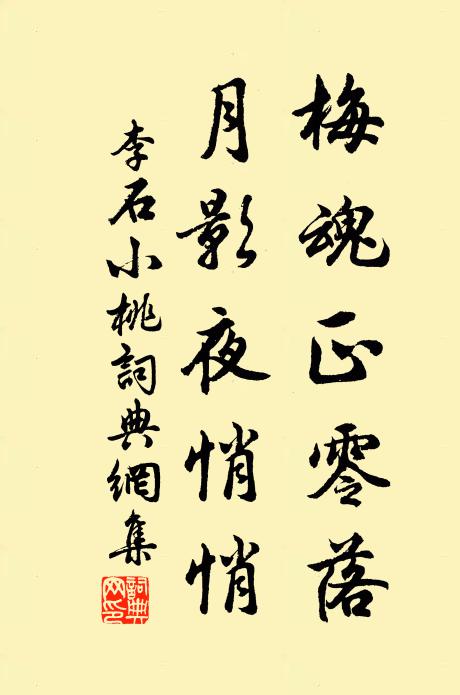 梅魂正零落
月影夜悄悄
李石小桃詞典網集
詞典網印